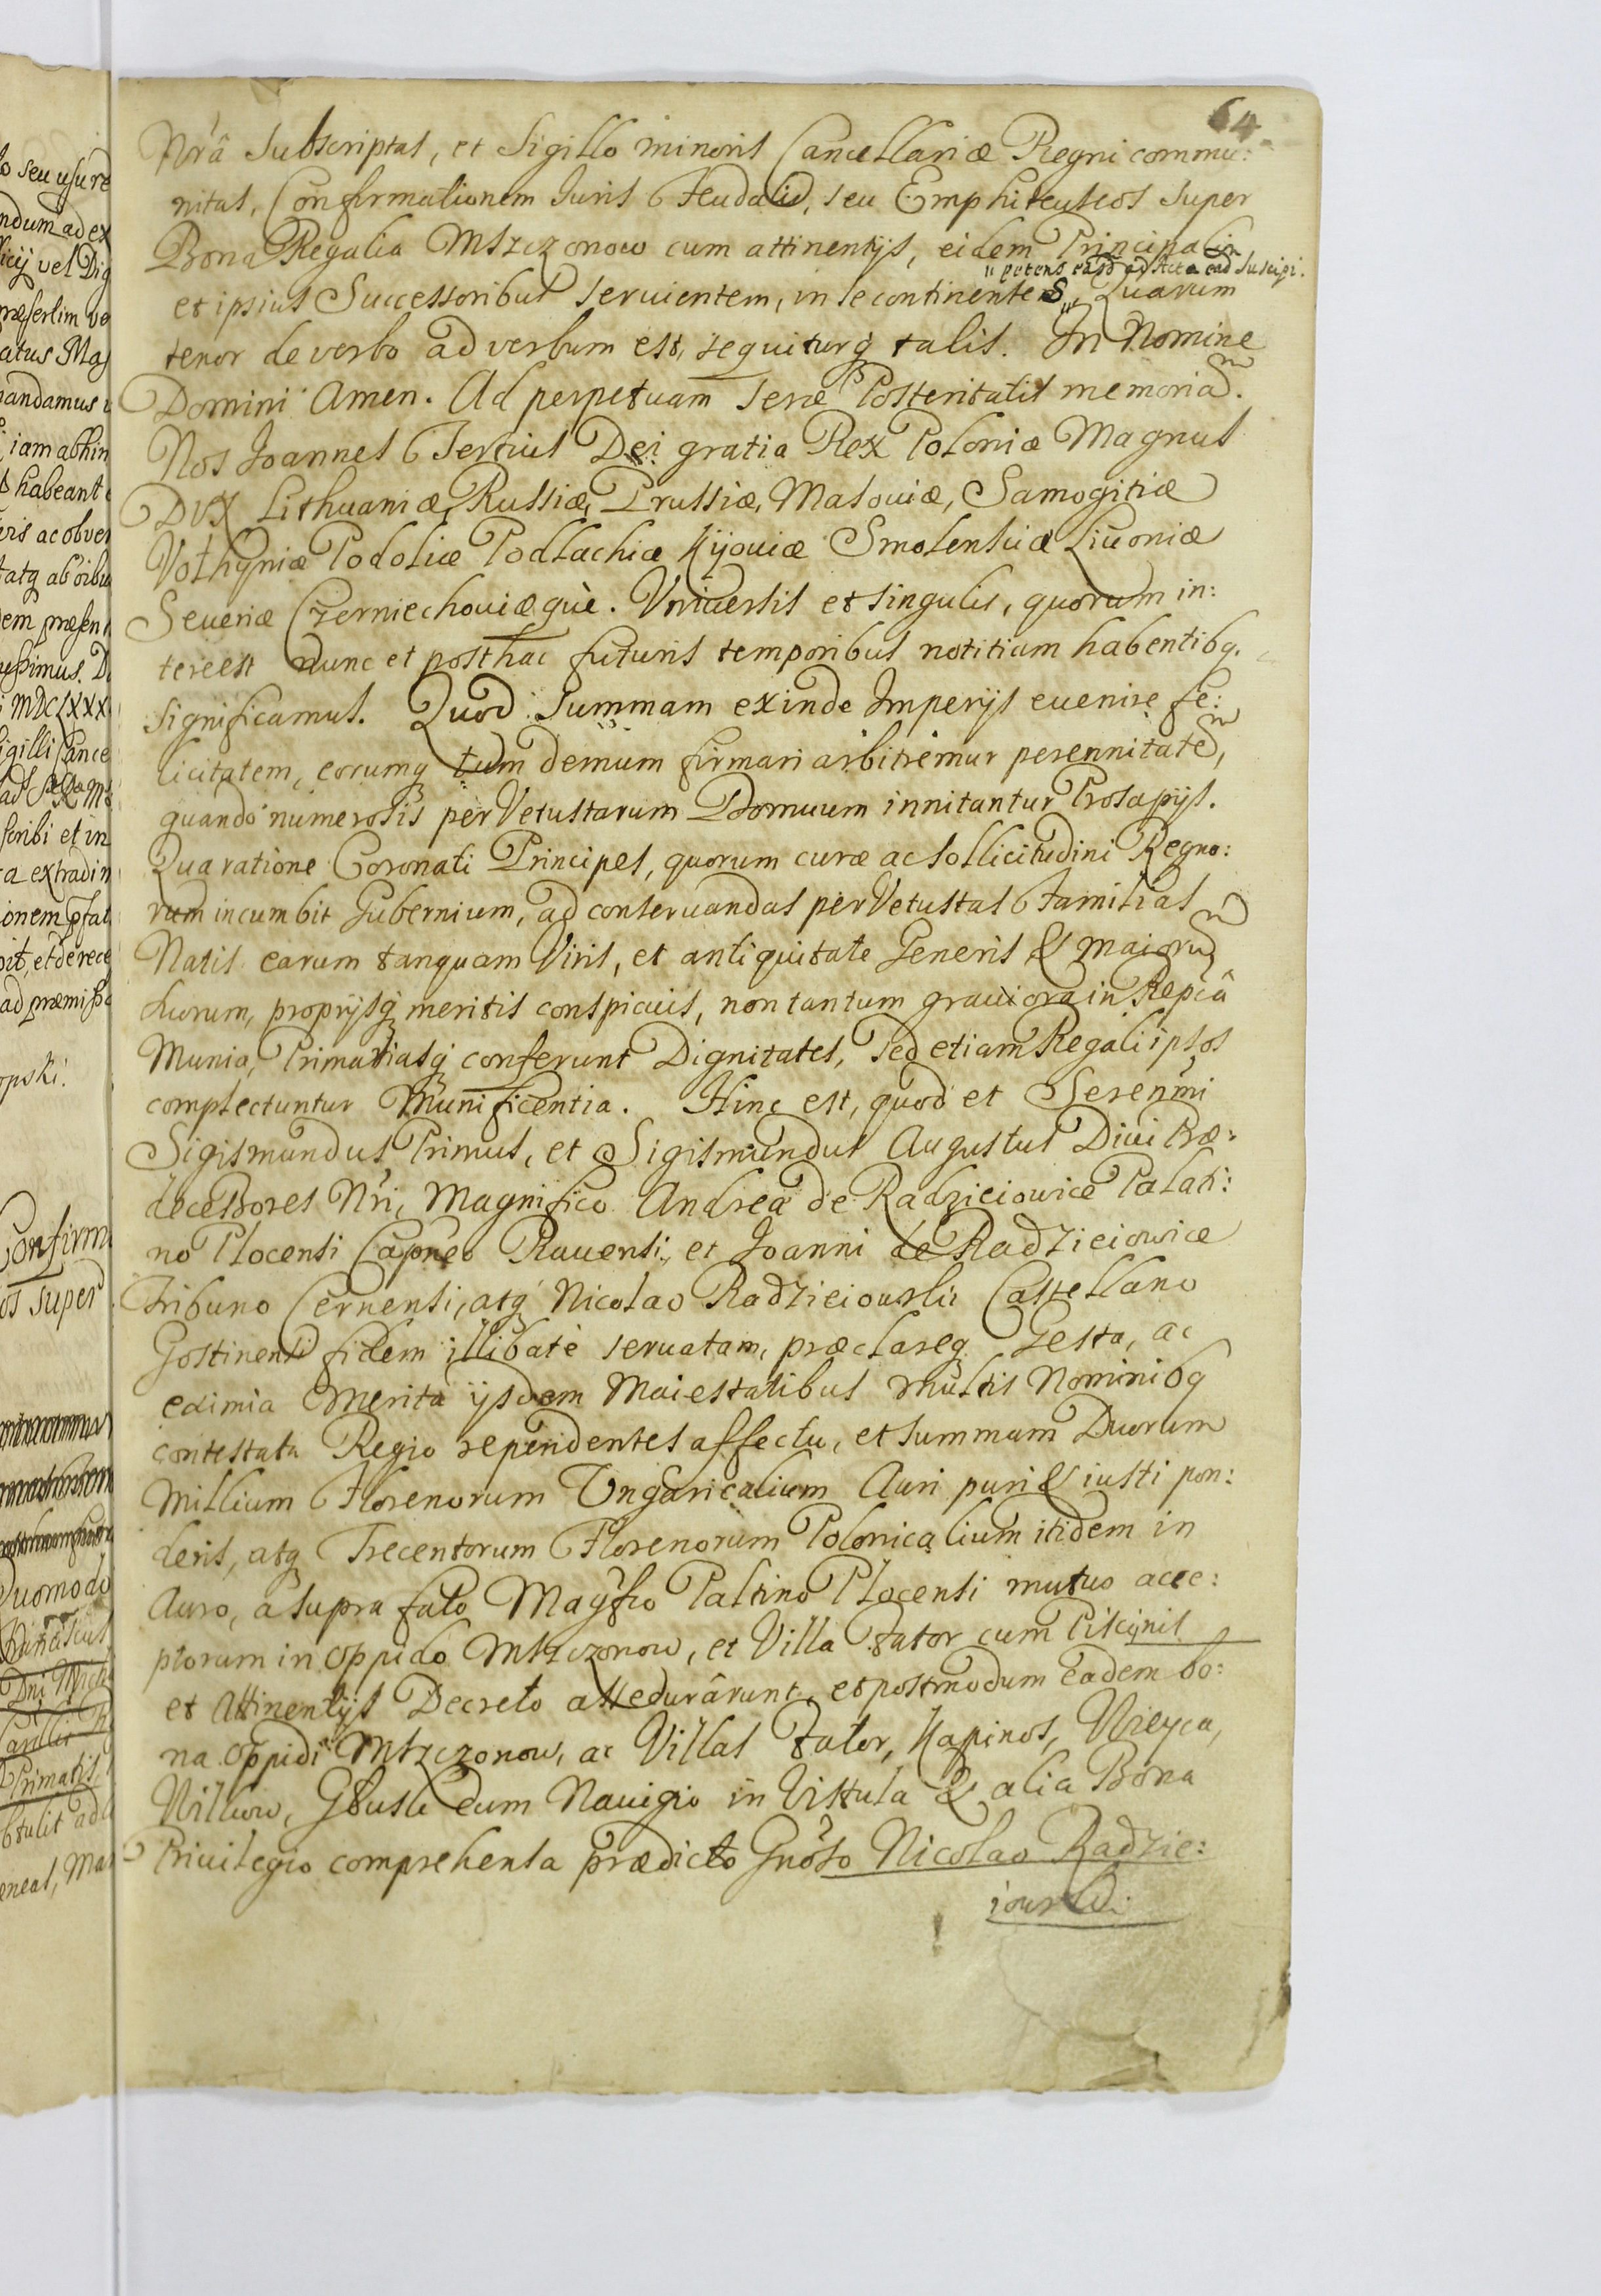 64
Nr̃â Subscriptas, et Sigillo minoris Cancellariæ Regni commu:
nitas, Confirmationem Iuris Feudalis, seu Emphiteuseos super
Bona Regalia Mszczonow cum attinentijs, eidem Principali
" petens easd ad Acta ead suscipi.
et ipsius Successoribus seruientem, in se continentes, Quarum
tenor de verbo ad verbum est, sequiturq talis. In Nomine
Domini Amen. Ad perpetuam seræ Posteritatis memoriam.
Nos Joannes Tertius Dei gratia Rex Poloniæ Magnus
Dux Lithuaniæ, Russiæ, Prussiæ, Masouiæ, Samogitiæ
Volhyniæ Podoliæ Podlachiæ Kijouiæ Smolensciæ Liuoniæ
Seueriæ Czerniechouiæquè. Vniuersis et singulis, quorum in:
terest nunc et posthac futuris temporibus notitiam habentibq.
significamus. Quod summam exinde Imperijs euenire fe:
licitatem, eorumq tum demum firmari arbitremur perennitatem,
quando numerosis per Vetustarum Domuum innitantur Prosapijs.
Qua ratione Coronati Principes, quorum curæ ac sollicitudini Regno:
rum incumbit Gubernium, ad conseruandas per Vetustas Familias
Natis earum tanquam Viris, et antiquitate Generis & maiorum
suorum, proprijsq meritis conspicuis, non tantum grauiora in Repcâ
Munia, Primatiasq conferunt Dignitates, sed etiam Regali ipsos
complectuntur Munificentia. Hinc est, quod et Serenm̃i
Sigismundus Primus, et Sigismundus Augustus Diui Præ:
decessores Nr̃i, Magnifico Andreæ de Radzieiowice Palati:
no Plocensi Capneo Rauensi, et Joanni de Radzieiowice
Tribuno Cernensi, atq Nicolao Radzieiowski Castellano
Gostinensi fidem illibatè seruatam, præclareq Gesta, ac
eximia Merita ijsdem Maiestatibus multis Nominibq
contestata Regio rependentes affectu, et summam Duorum
Millium Florenorum Vngaricalium Auri puri & iusti pon:
deris, atq Trecentorum Florenorum Polonicalium itidem in
Auro, a supra fato Magfco Paltino Plocensi mutuo acce:
ptorum in oppido Mszczonow, et Villa Tator cum Piscinis
et Attinentijs Decreto assedurârunt, et postmodum Eadem bo:
na oppidi Mszczonow, ac Villas Tator, Kapinos, Wieyca,
Wilkow, Głusk cum Nauigio in Vistula & alia Bona
Priuilegio comprehensa prædicto Gnõso Nicolao Radzie:
iowski.